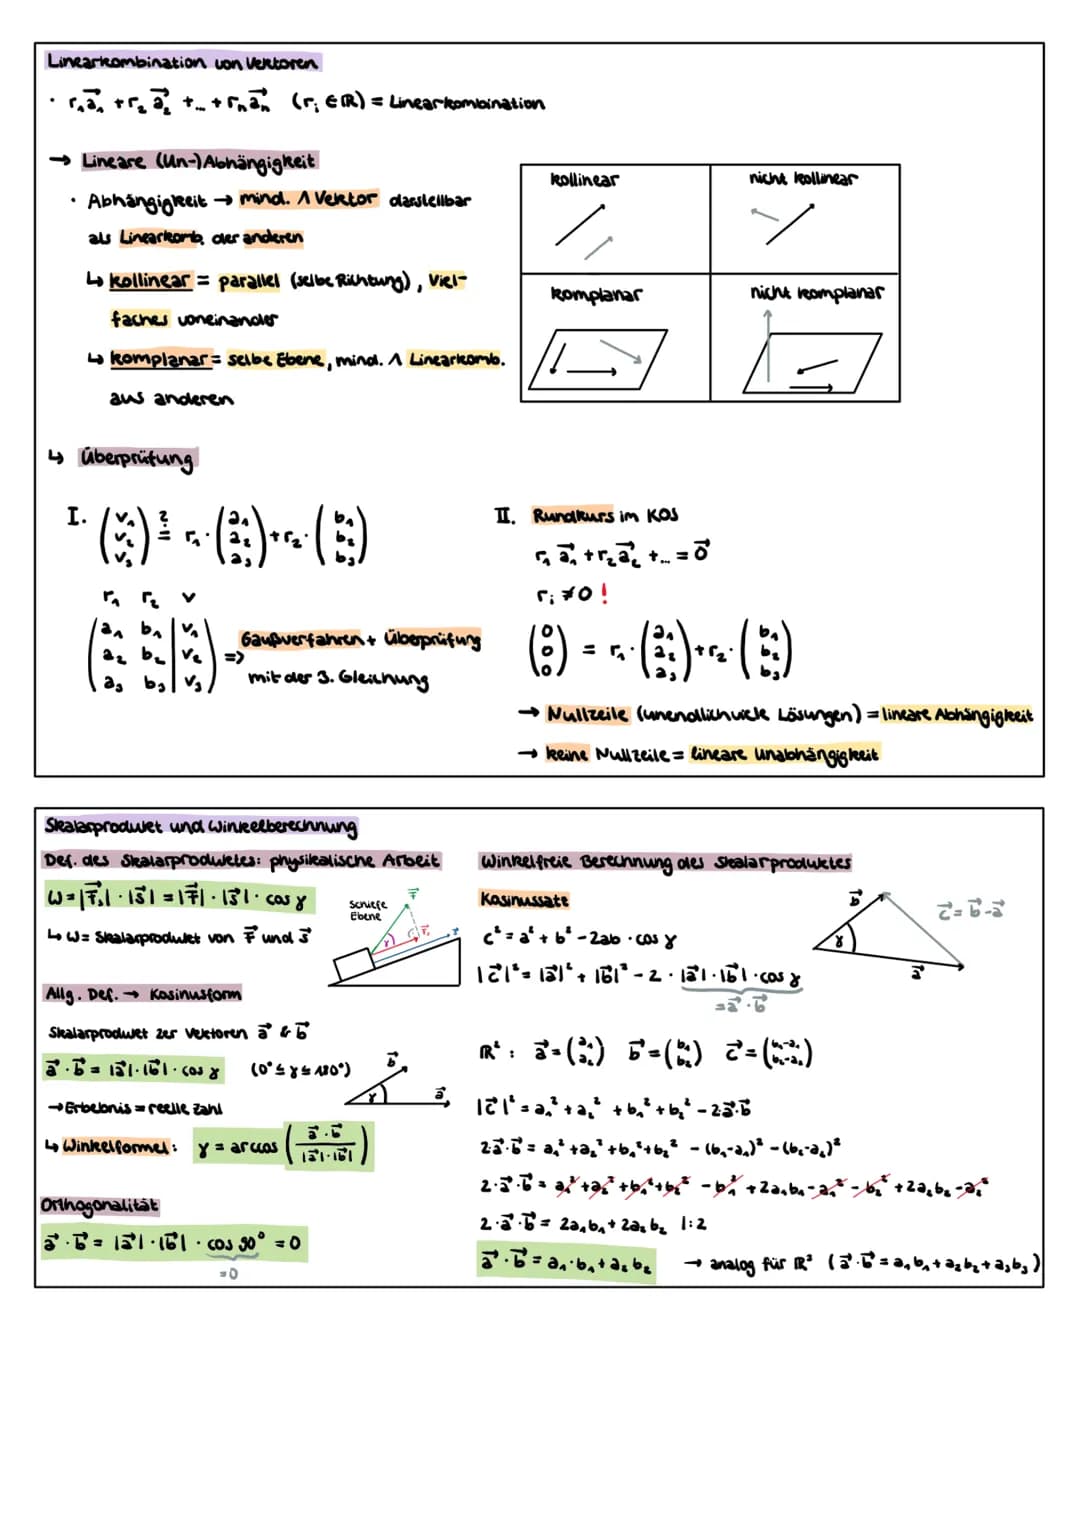 Linearkombination von Vektoren
· r₁a⃗₁ + r₂a⃗₂ + ... + rₙa⃗ₙ (rᵢ ∈ ℝ) = Linearkombination
→ Lineare (Un-)Abhängigkeit
· Abhängigkeit → mind. 1 Vektor darstellbar
als Linearkomb. der anderen
↳ kollinear = parallel (selbe Richtung), Viel-
faches voneinander
↳ komplanar = selbe Ebene, mind. 1 Linearkomb.
aus anderen
kollinear
nicht kollinear
komplanar
nicht komplanar
↳ Überprüfung
I. (v₁ v₂ v₃) ≟ r₁ · (a₁ a₂ a₃) + r₂ · (b₁ b₂ b₃)
r₁ r₂ v
(a₁ b₁ | v₁
a₂ b₂ | v₂
a₃ b₃ | v₃)
=> Gaußverfahren + Überprüfung
mit der 3. Gleichung
II. Rundkurs im KOS
r₁a⃗₁ + r₂a⃗₂ + ... = 0⃗
rᵢ ≠ 0 !
(0 0 0) = r₁ · (a₁ a₂ a₃) + r₂ · (b₁ b₂ b₃)
→ Nullzeile (unendlich viele Lösungen) = lineare Abhängigkeit
→ keine Nullzeile = lineare Unabhängigkeit
Skalarprodukt und Winkelberechnung
Def. des Skalarproduktes: physikalische Arbeit
W = |F⃗ₛ| · |s⃗| = |F⃗| · |s⃗| · cos γ
↳ W = Skalarprodukt von F⃗ und s⃗
Schiefe
Ebene
F⃗
γ
F⃗ₛ
s⃗
Allg. Def. → Kosinusform
Skalarprodukt zer Vektoren a⃗ & b⃗
a⃗ · b⃗ = |a⃗| · |b⃗| · cos γ (0° ≤ γ ≤ 180°)
b⃗
γ
a⃗
→ Erbebnis = reelle Zahl
↳ Winkelformel: γ = arccos (a⃗ · b⃗ / |a⃗| · |b⃗|)
Orthogonalität
a⃗ · b⃗ = |a⃗| · |b⃗| · cos 90° = 0
=0
Winkelfreie Berechnung des Skalarproduktes
Kosinussatz
c² = a² + b² - 2ab · cos γ
|c⃗|² = |a⃗|² + |b⃗|² - 2 · |a⃗| · |b⃗| · cos γ
= a⃗ · b⃗
b⃗
c⃗ = b⃗ - a⃗
γ
a⃗
ℝ² : a⃗ = (a₁ a₂) b⃗ = (b₁ b₂) c⃗ = (b₁-a₁ b₂-a₂)
|c⃗|² = a₁² + a₂² + b₁² + b₂² - 2a⃗·b⃗
2a⃗·b⃗ = a₁² + a₂² + b₁² + b₂² - (b₁-a₁)² - (b₂-a₂)²
2·a⃗·b⃗ = a₁² + a₂² + b₁² + b₂² - b₁² + 2a₁b₁ - a₁² - b₂² + 2a₂b₂ - a₂²
2·a⃗·b⃗ = 2a₁b₁ + 2a₂b₂ |:2
a⃗ · b⃗ = a₁·b₁ + a₂b₂ → analog für ℝ³ (a⃗·b⃗ = a₁b₁ + a₂b₂ + a₃b₃)